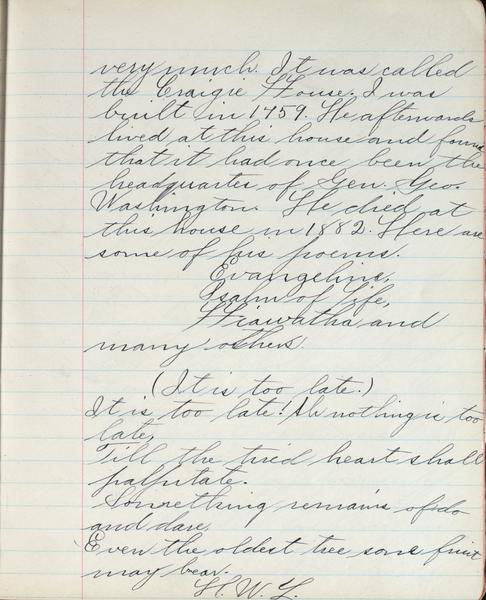 very much. It was called
the Craigie House. I was
built in 1759. He afterwards
lived at this house and found
that it had once been the
headquartes of Gen. Geo.
Washington. He died at
this house in 1882. Here are
some of his poems.
Evangeline,
Psalm of Life,
Hiawatha and
many others.
(It is too late.)
It is too late! Ah nothing is too
late,
Till the tired heart shall
palpitate.
Something remains of do
and dare
Even the oldest tree some fruit
may bear.
H. W. L.